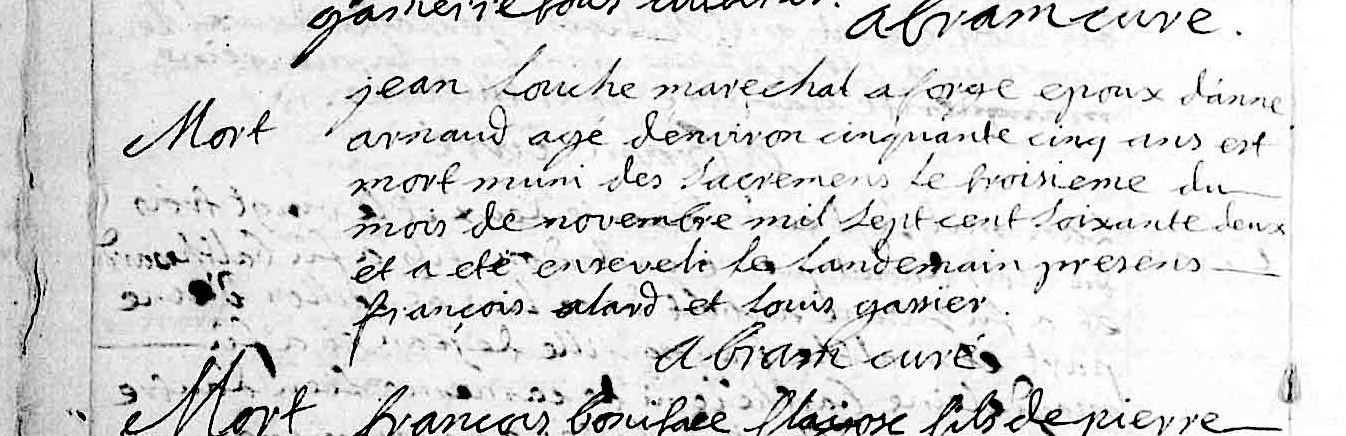 abram curé.
jean louche marechal a forge epoux d'anne
Mort
arnaud agé denviron cinquante cinq ans est
mort muni des sacremens le troisieme du
mois de novembre mil sept cent soixante deux
et a eté enseveli le landemain presens
françois alard et louis gassier.
abram curé
Mort françois boniface fils de pierre